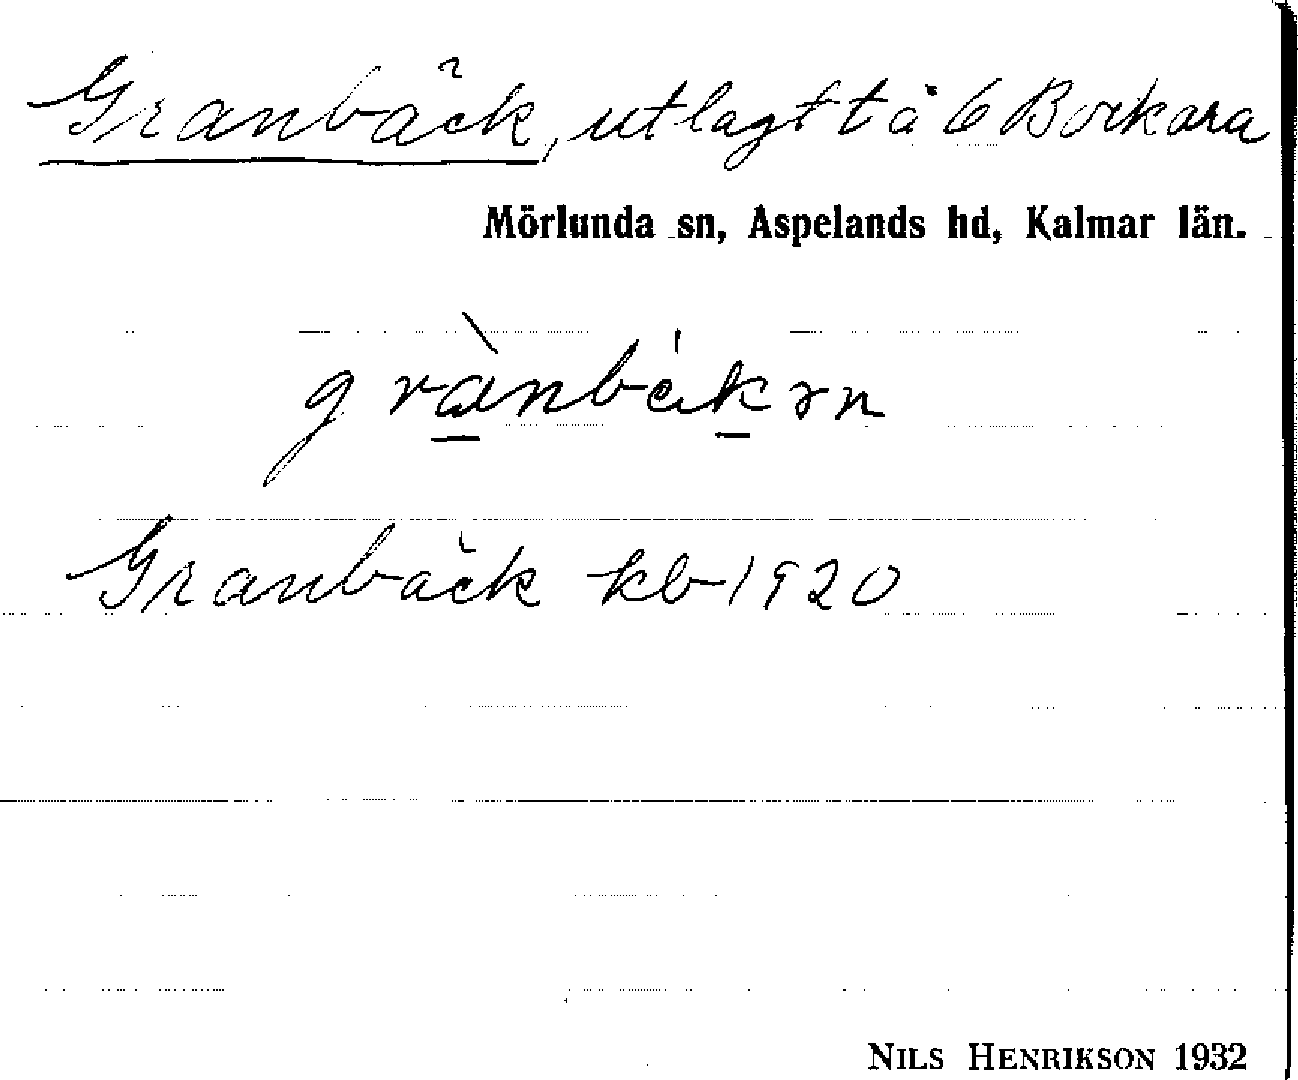 Granbäck, utlagt t å 6 Borkara
Mörlunda sn, Aspelands hd, Kalmar län.
Granbäck kb 1920
NILS HENRIKSON 1932